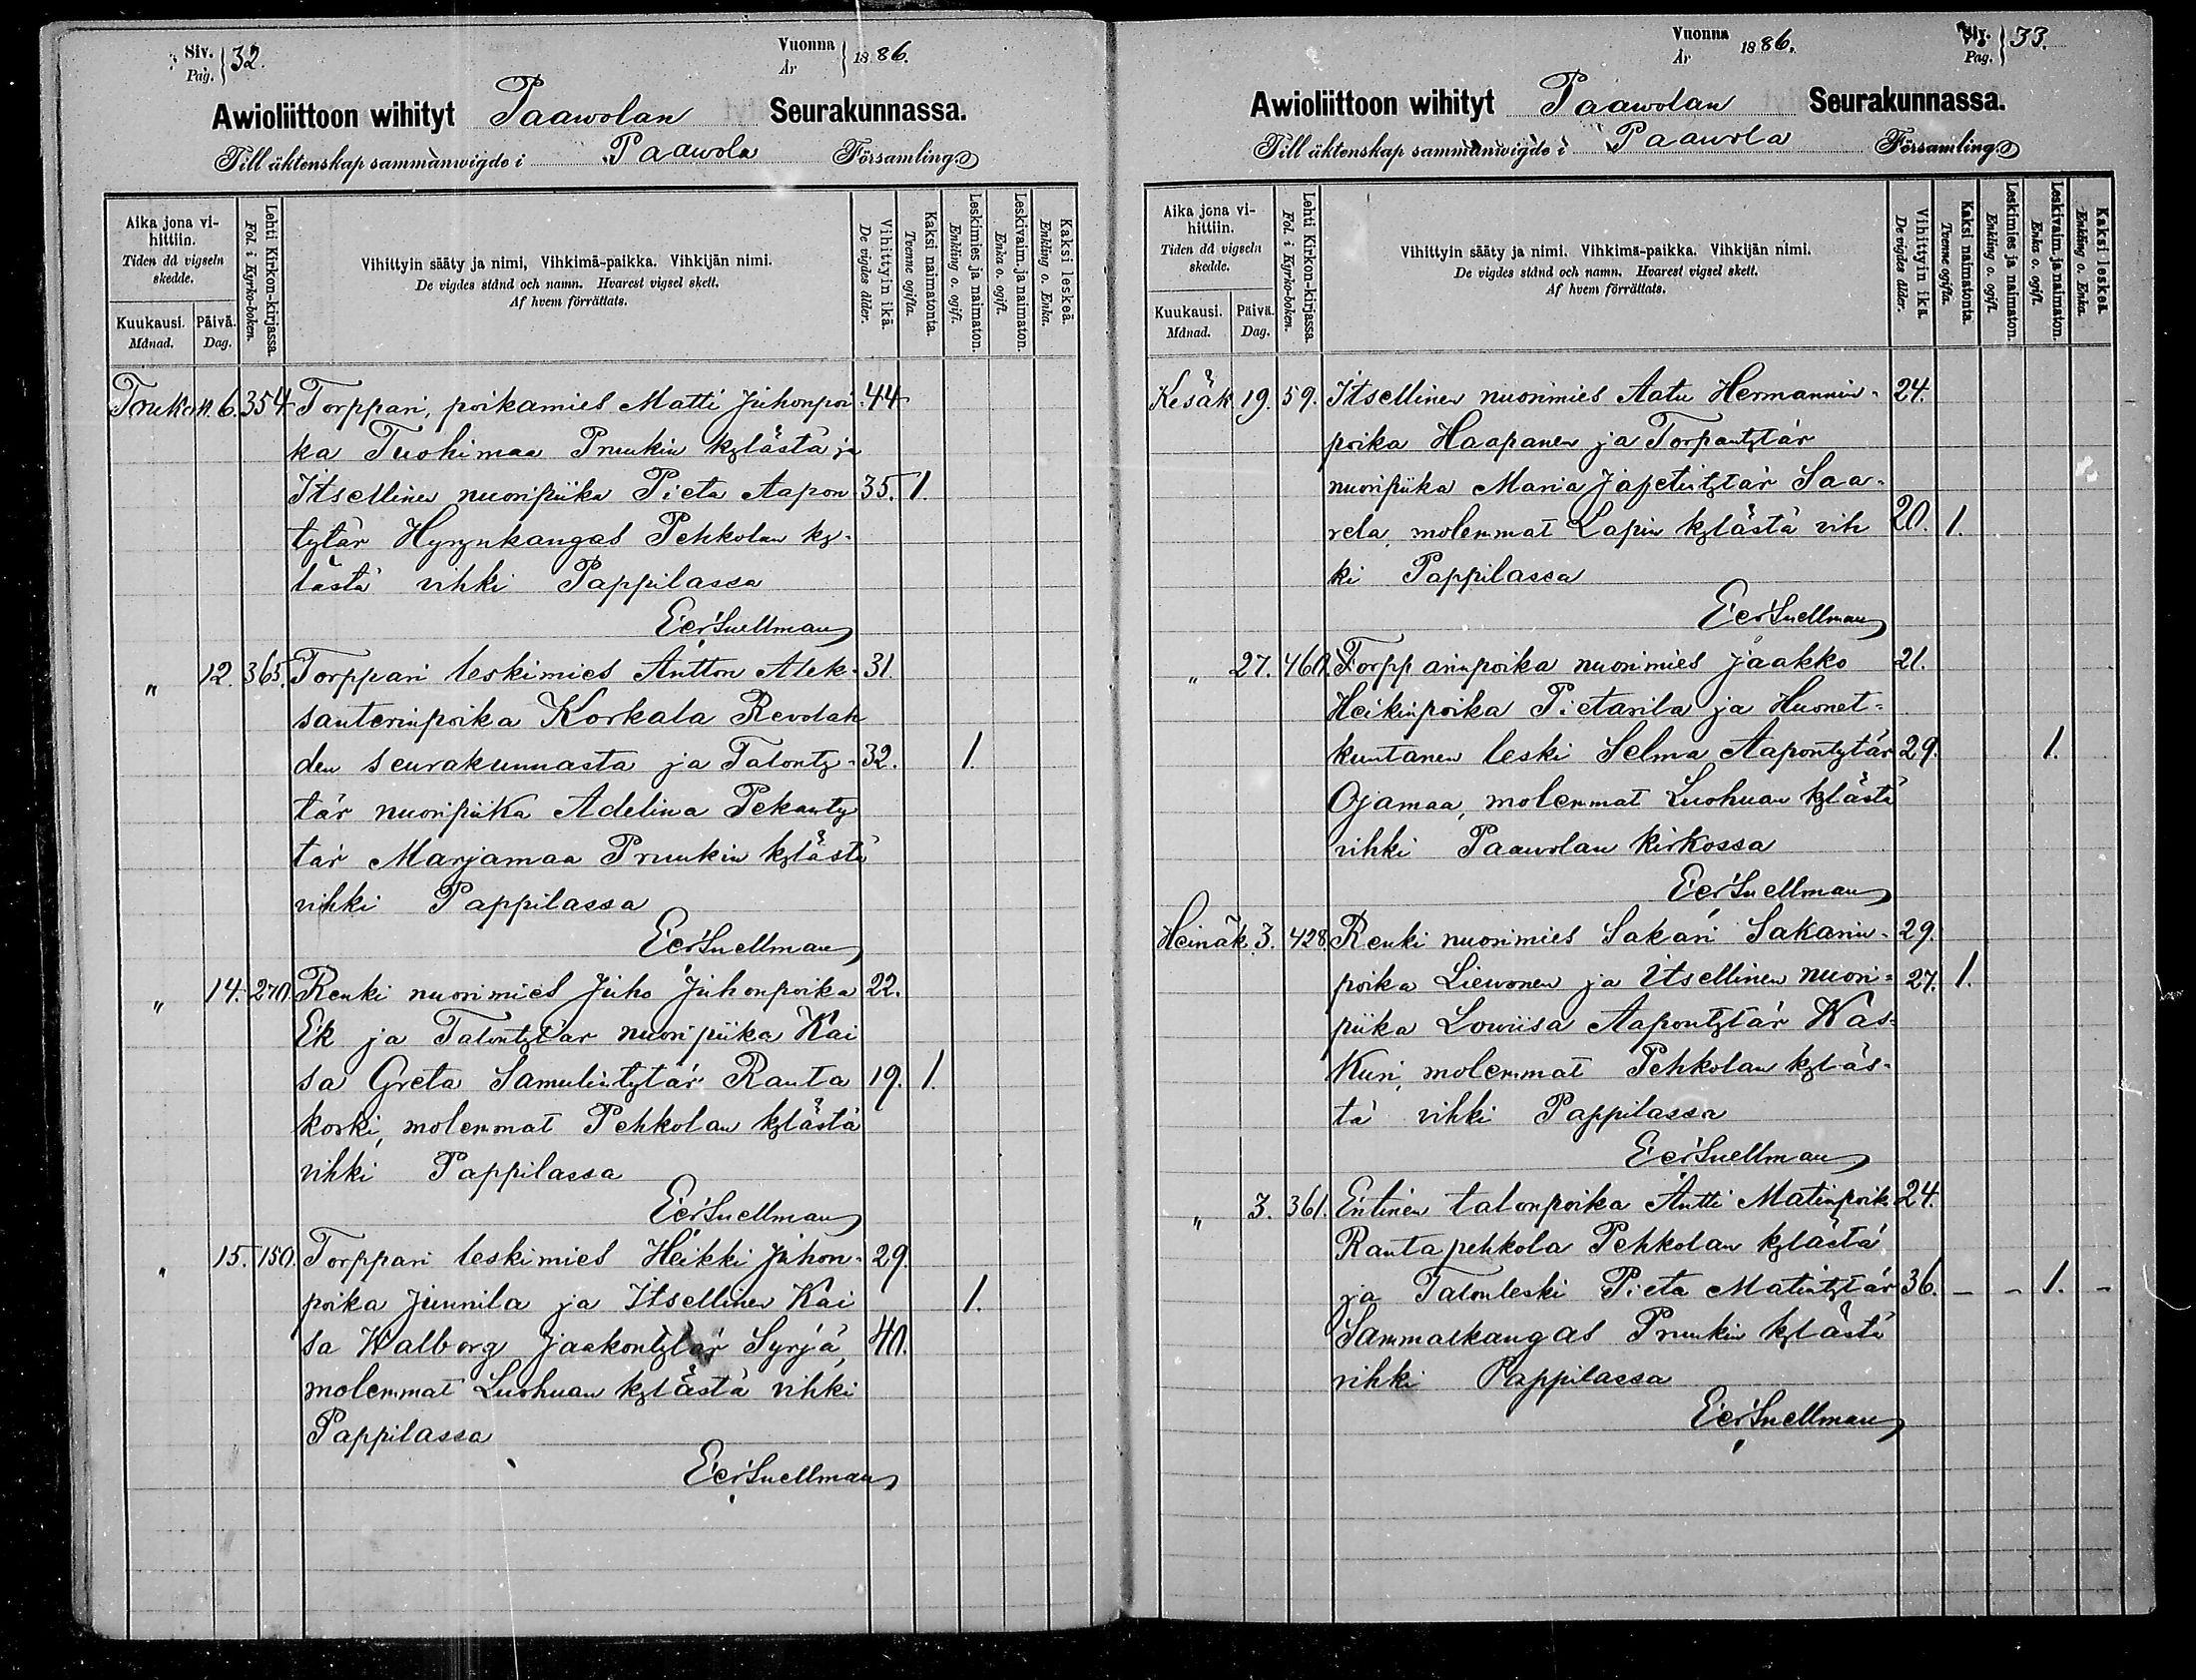 Siv. Pag. 32.
Vuonna År 1886.
Awioliittoon wihityt Paawolan Seurakunnassa.
Till äktenskap sammanwigde i Paawola Församling
Aika jona vi-hittiin. Tiden då vigseln skedde.
Kuukausi. Månad.
Päivä. Dag.
Lehti Kirkon-kirjassa. Fol. i Kyrko-boken.
Vihittyin sääty ja nimi, Vihkimä-paikka. Vihkijän nimi.
De vigdes stånd och namn. Hvarest vigsel skett.
Af hvem förrättats.
Vihittyin ikä. De vigdes ålder.
Kaksi naimatonta. Tvenne ogifta.
Leskimies ja naimaton. Enkling o. ogift.
Leskivaim. ja naimaton. Enka o. ogift.
Kaksi leskeä. Enkling o. Enka.
Toukok. 6. 354 Torppari, poikamies Matti Juhonpoi- 44
ka Tuohimaa Pruukin kylästä ja
Itsellinen nuoripiika Pieta Aapon 35. 1.
tytär Hyrynkangas Pehkolan ky-
lästä vihki Pappilassa
Eer Snellman
" 12. 365. Torppari leskimies Antton Alek- 31
santerinpoika Korkala Revolah
den seurakunnasta ja Talonty- 32. 1.
tär nuoripiika Adelina Pekanty
tär Marjamaa Pruukin kylästä
vihki Pappilassa
Eer Snellman
" 14. 270. Renki nuorimies Juho Juhonpoika 22.
Ek ja Talontytär nuoripiika Kai
sa Greta Samulintytär Ranta 19. 1.
koski, molemmat Pehkolan kylästä
vihki Pappilassa
Eer Snellman
" 15. 150. Torppari leskimies Heikki Juhon- 29.
poika Junnila ja Itsellinen Kai 1.
sa Walborg Jaakontytär Syrjä, 40.
molemmat Luohuan kylästä vihki
Pappilassa
Eer Snellman
Vuonna År 1886.
Siv. Pag. 33.
Awioliittoon wihityt Paawolan Seurakunnassa.
Till äktenskap sammanwigde i Paawola Församling
Aika jona vi-hittiin. Tiden då vigseln skedde.
Kuukausi. Månad.
Päivä. Dag.
Lehti Kirkon-kirjassa. Fol. i Kyrko-boken.
Vihittyin sääty ja nimi. Vihkimä-paikka. Vihkijän nimi.
De vigdes stånd och namn. Hvarest vigsel skett.
Af hvem förrättats.
Vihittyin ikä. De vigdes ålder.
Kaksi naimatonta. Tvenne ogifta.
Leskimies ja naimaton. Enkling o. ogift.
Leskivaim. ja naimaton. Enka o. ogift.
Kaksi leskeä. Enkling o. Enka.
Kesäk 19. 59. Itsellinen nuorimies Aatu Hermannin- 24.
poika Haapanen ja Torpantytär
nuoripiika Maria Japetintytär Saa-
rela, molemmat Lapin kylästä vih 20. 1.
ki Pappilassa
Eer Snellman
" 27. 460. Torpparinpoika nuorimies Jaakko 21.
Heikinpoika Pietarila ja Huonet-
kuntanen leski Selma Aapontytär 29. 1.
Ojamaa, molemmat Luohuan kylästä
vihki Paawolan kirkossa
Eer Snellman
Heinäk. 3. 428. Renki nuorimies Sakari Sakarin- 29.
poika Liewonen ja Itsellinen nuori- 27. 1.
piika Lowiisa Aapontytär Kas-
Kuri, molemmat Pehkolan kyläs-
tä vihki Pappilassa
Eer Snellman
" 3. 361. Entinen talonpoika Antti Matinpoik 24.
Rantapehkola Pehkolan kylästä
ja Talonleski Pieta Matintytär 36. - - 1. -
Sammalkangas Pruukin kylästä
vihki Pappilassa
Eer Snellman